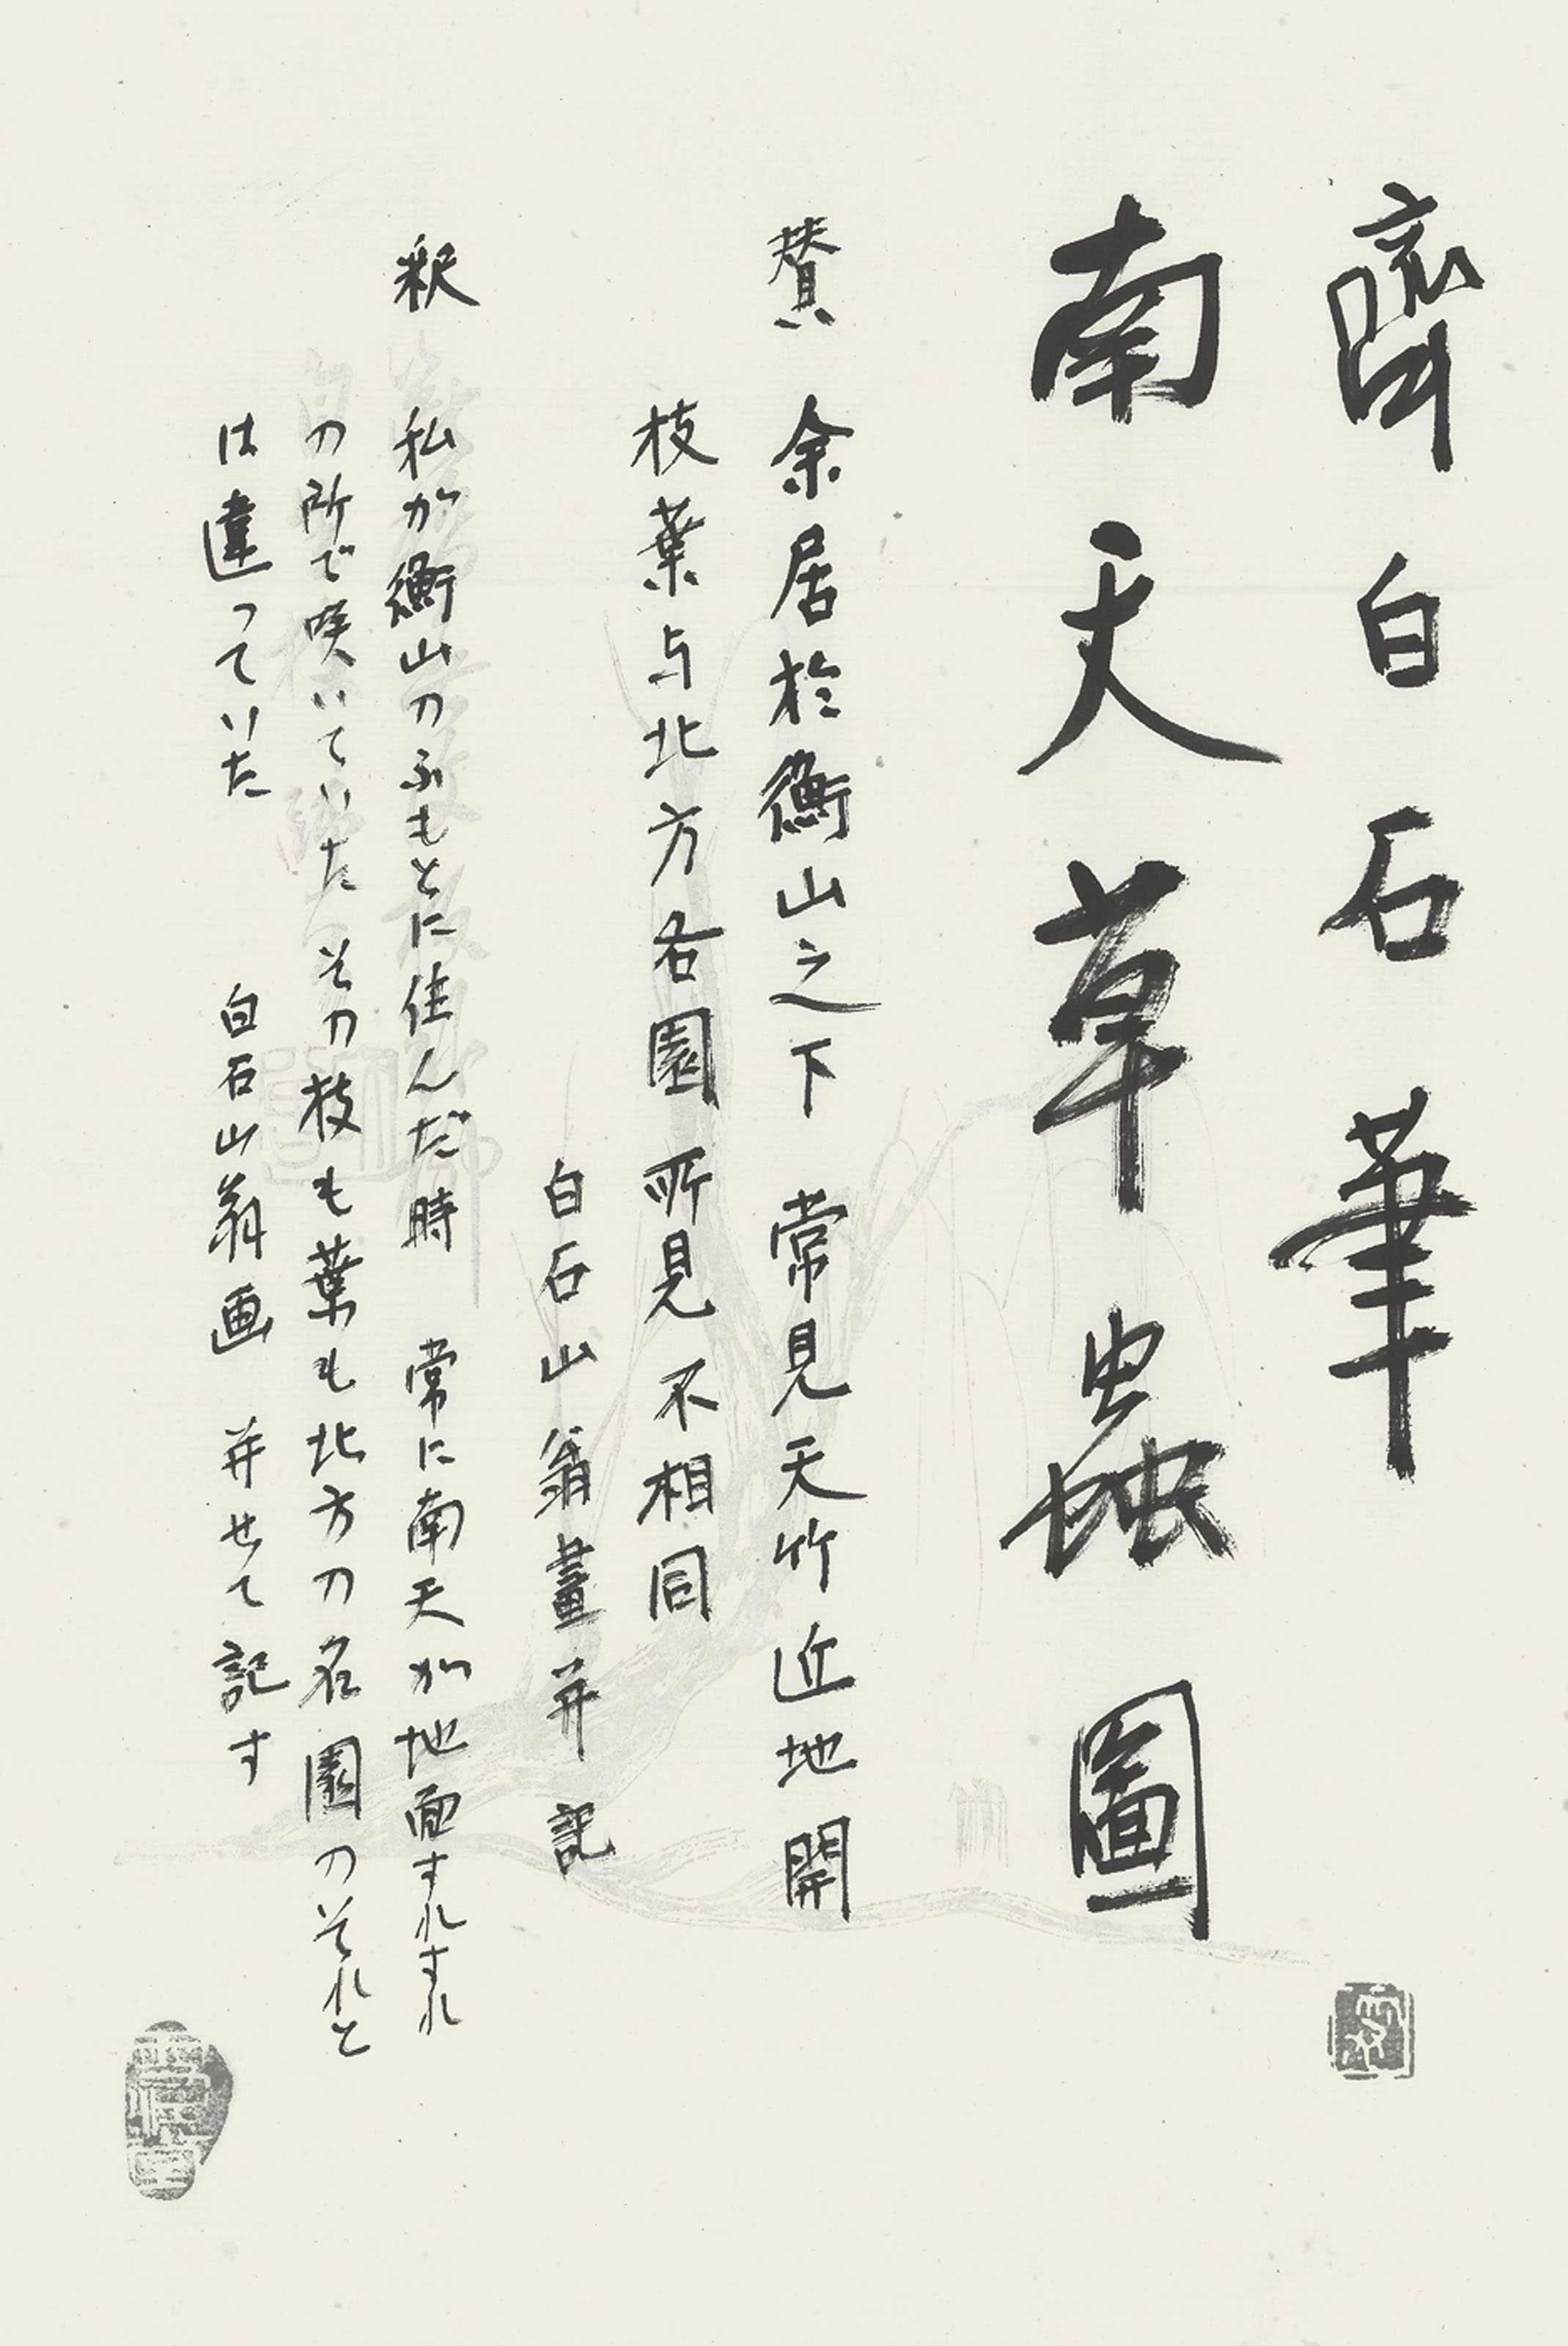 齊白石筆
南天草蟲圖
賛 余居於衡山之下 常見天竹近地開
枝葉与北方名園所見不相同
白石山翁畫并記
釈 私が衡山のふもとに住んだ時 常に南天が地面すれすれ
の所で咲いていた その枝も葉も北方の名園のそれと
は違っていた 白石山翁画 并せて記す